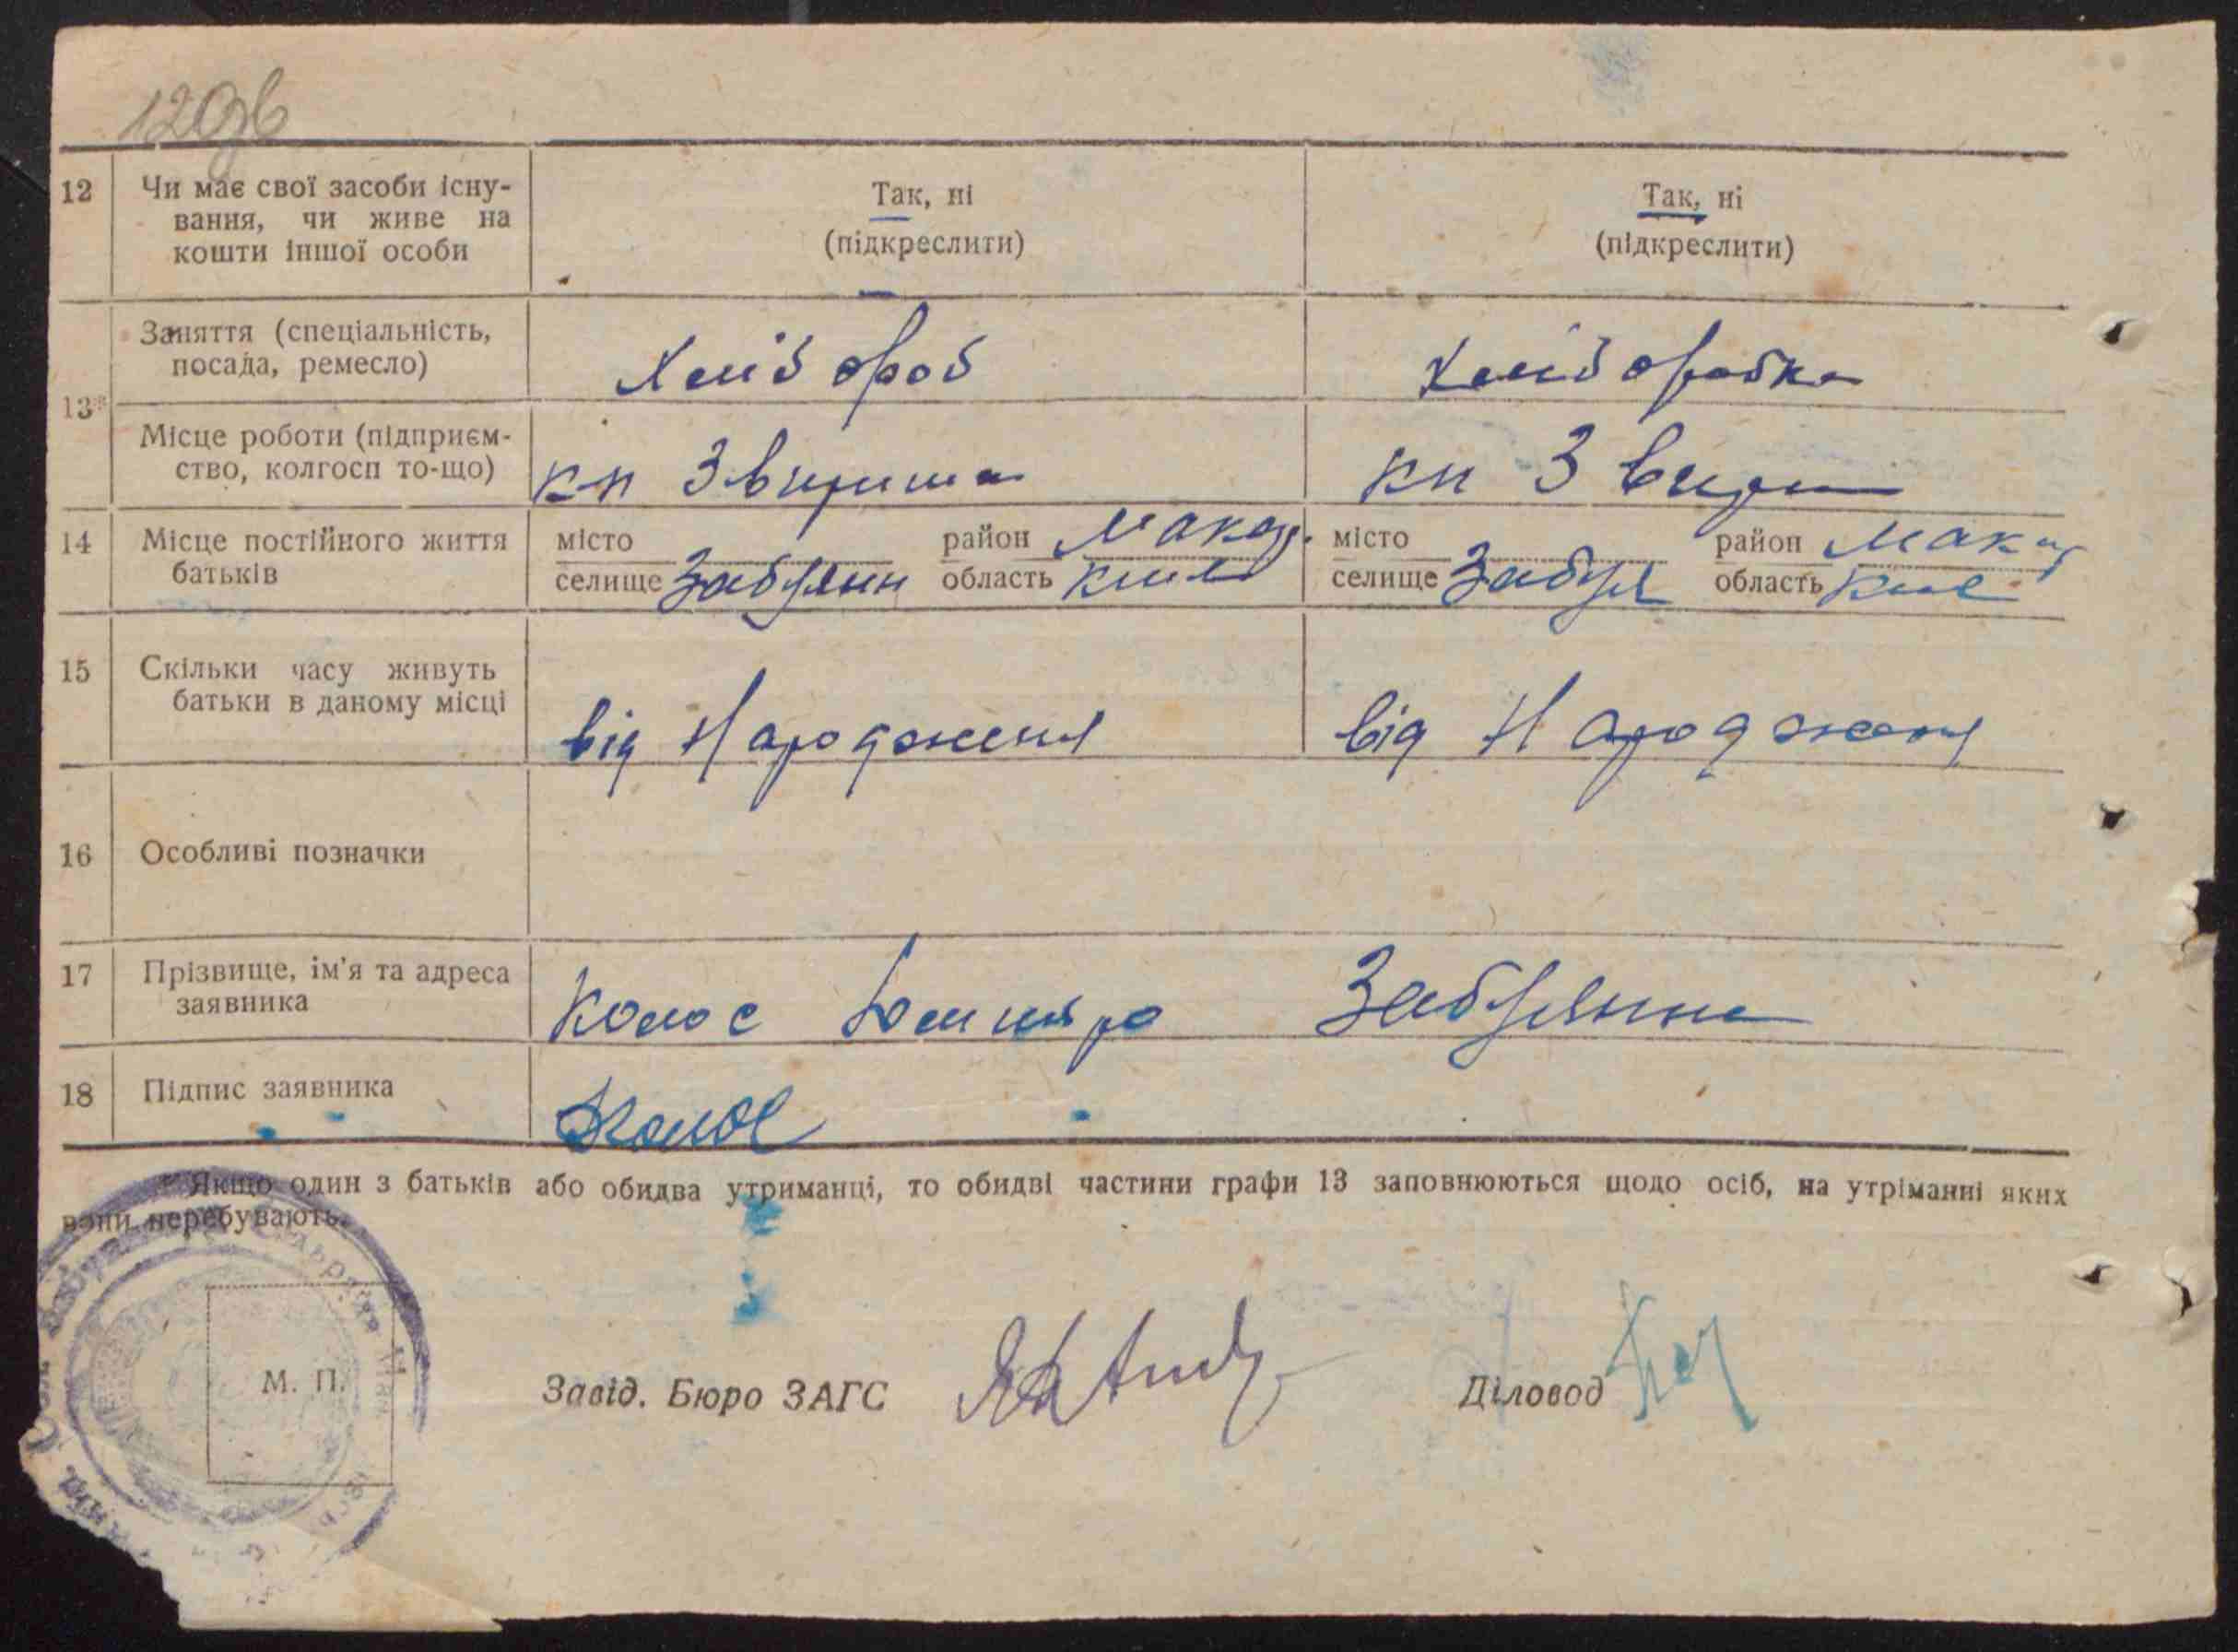 12зв
12 Чи має свої засоби існу-
вання, чи живе на
кошти іншої особи
Так, ні
(підкреслити)
Так, ні
(підкреслити)
13*
Заняття (спеціальність,
посада, ремесло)
Хліб ороб
Хлібороб​ка
Місце роботи (підприєм-
ство, колгосп то-що)
14 Місце постійного життя
батьків
місто
селище Забуянн
район Макар.
область Київ
місто
селище Забуя
район Мака
область Киє
15 Скільки часу живуть
батьки в даному місці
від Народження
від Народження
16 Особливі позначки
17 Прізвище, ім'я та адреса
заявника
Колос Забуяння
18 Підпис заявника
Колос
* Якщо один з батьків або обидва утриманці, то обидві частини графи 13 заповнюються щодо осіб, на утріманні яких
вони перебувають.
М. П.
Завід. Бюро ЗАГС
Діловод